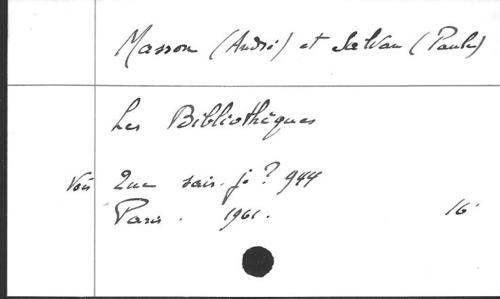 Masson (André) et Salvan (Paule)
Les Bibliothèques
Voir Que sais-je ? 944
Paris. 1961. 16